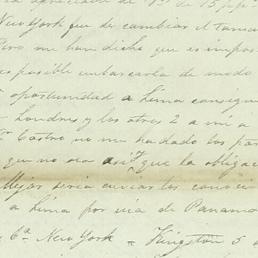 New York que de cambiar el tama
Pero me han dicho que es impos
posible embarcarla de modo
oportunidad a Lima consigue
Londres y los otros 2 a mi a
Castro no me ha dado los pa
que no sea así, que la obliga
Mejor seria enviarlos
a Lima por via de Panamá
y Ca. New York = Kingston 5 d